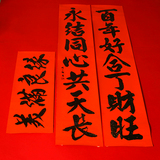 百年好合丁财旺
永结同心共天长
美满良缘